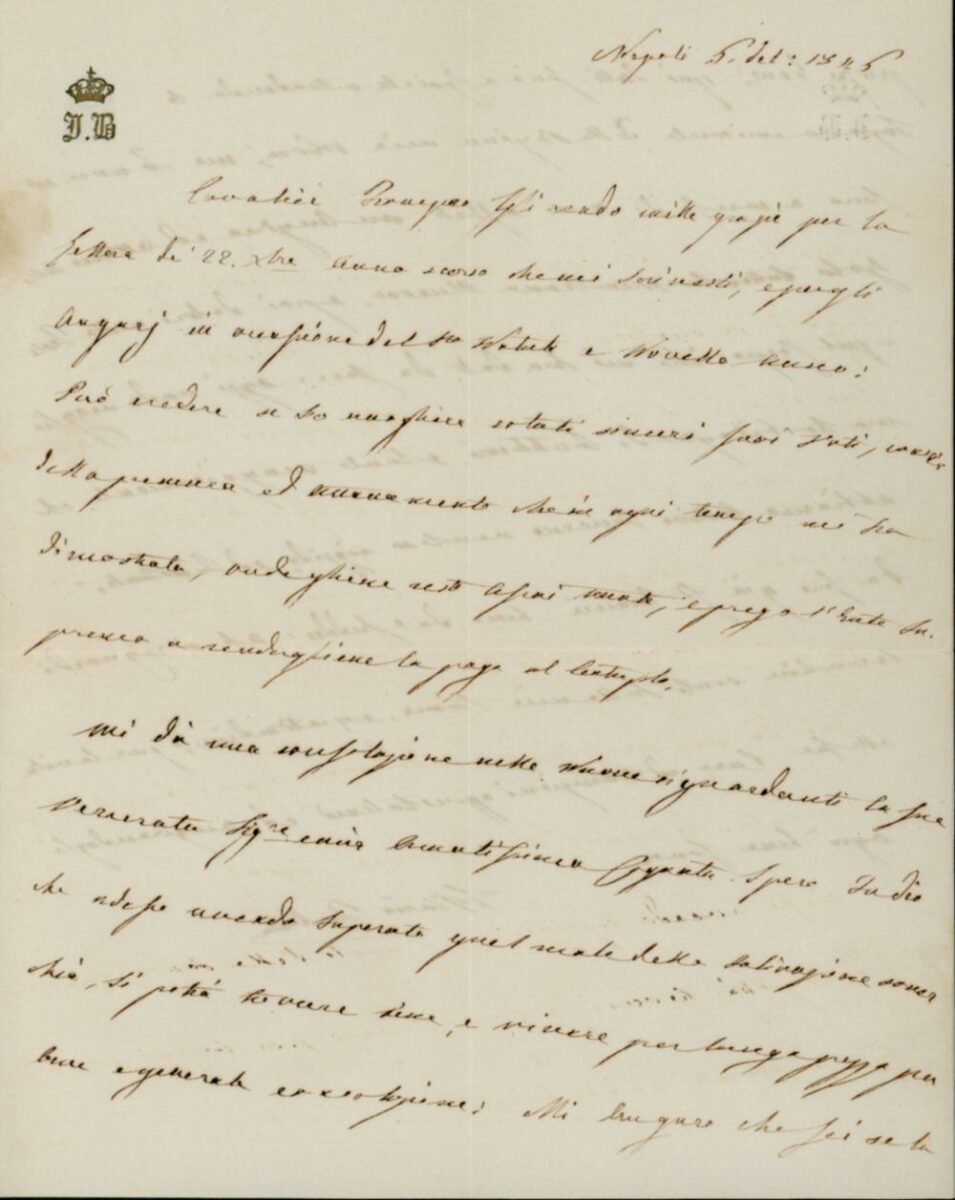 Napoli 5. del: 18
I.B
Cavalier gli rendo mille grazie per la
lettera di 22. Xbre anno scorso che mi scrivesti, e per gli
Augurj in occasione del Sto Natale e Novello anno:
Può credere se Io sinceri suoi voti,
della premura ed che in ogni tempo mi ha
dimostrata, onde gliene resto assai grata, e prego l'Ente Su-
premo a rendergliene la paga al Centuplo.
Mi dà una consolazione nelle nuove riguardanti la sua
venerata Sigre e mia amatissima Spero In dio
che adesso avendo superato quel male della salivazione sover
chia, si potrà trovare bene, e vivere per lungo pezzo per
bene e generale consolazione: Mi auguro che sei se la